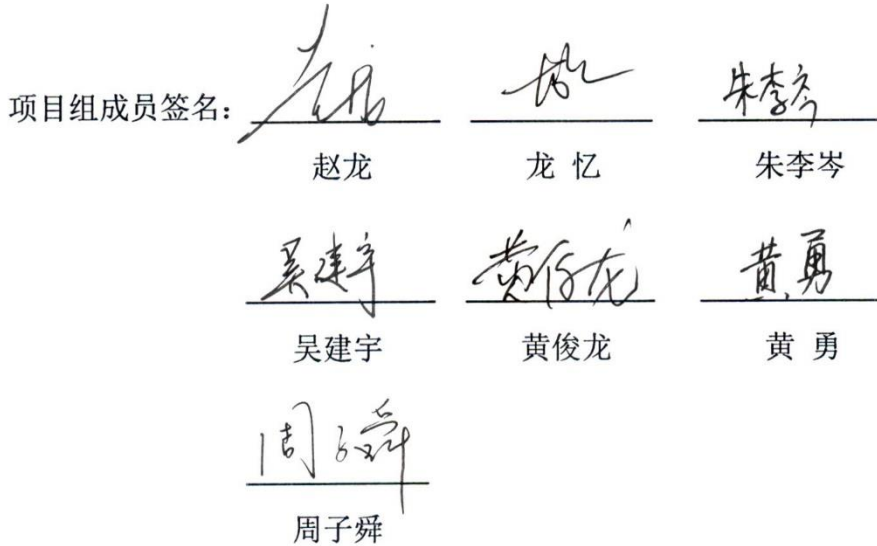 项目组成员签名: 赵龙 龙忆 朱李岑
赵龙 龙 忆 朱李岑
吴建宇 黄俊龙 黄勇
吴建宇 黄俊龙 黄 勇
周子舜
周子舜